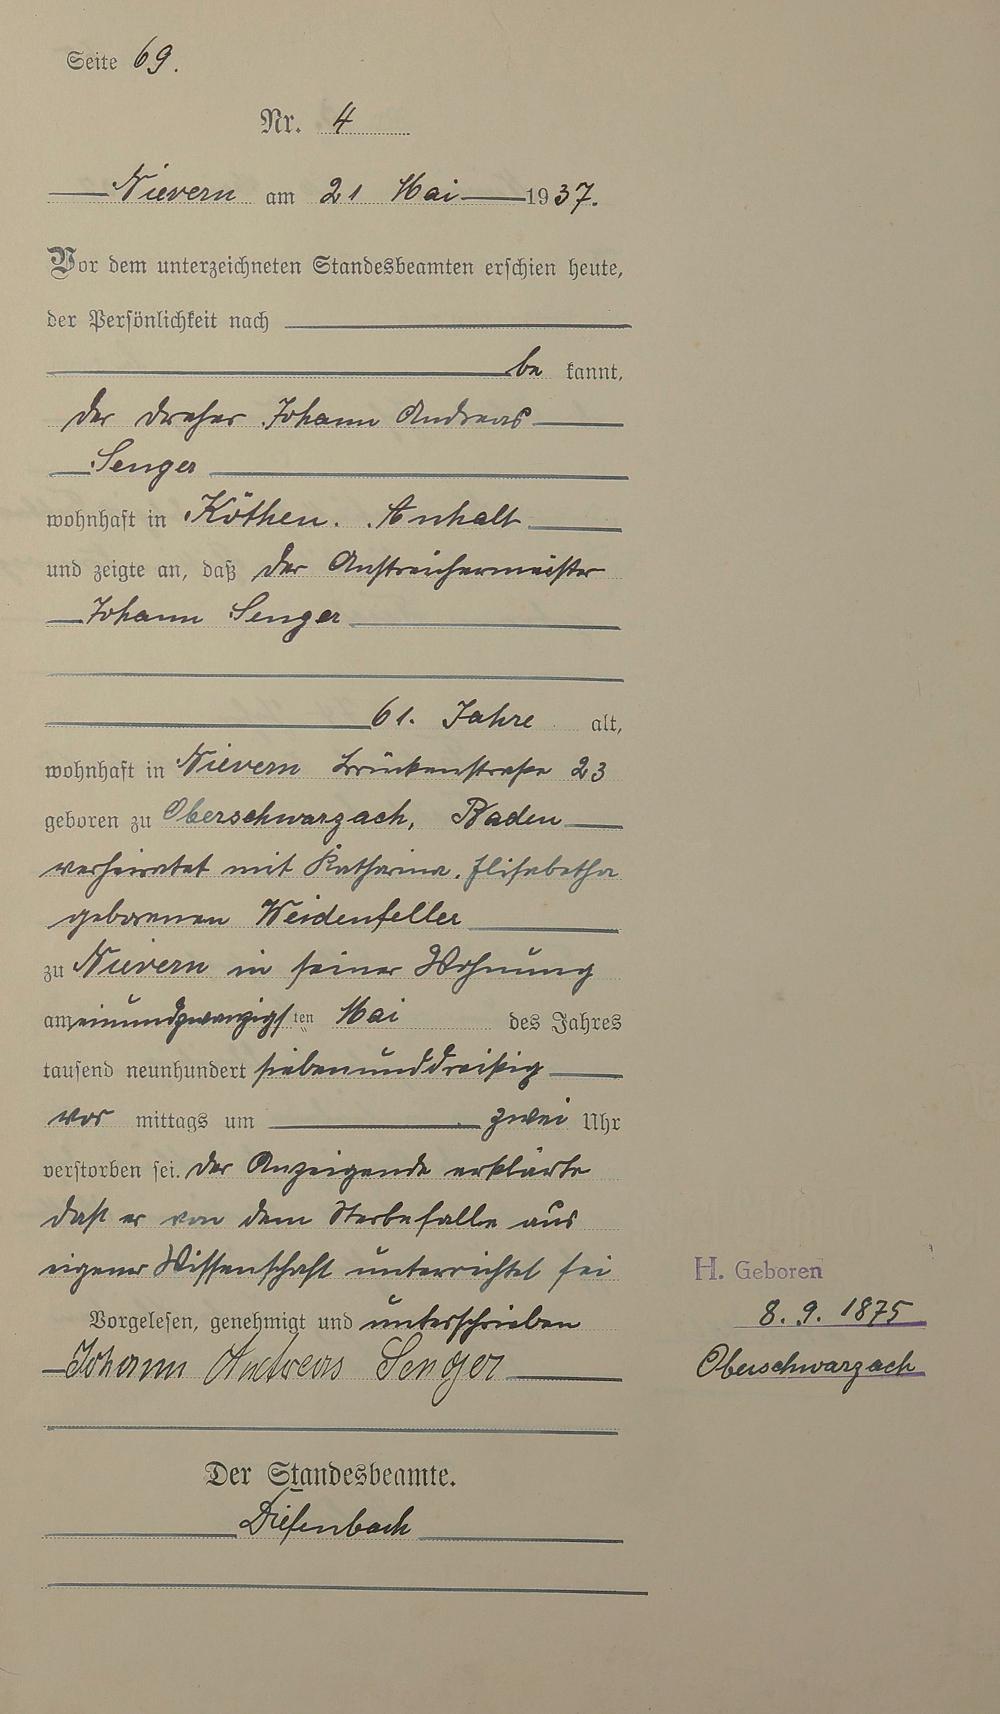 Seite 69.
Nr. 4
Nievern am 21 Mai 1937.
Vor dem unterzeichneten Standesbeamten erschien heute,
der Persönlichkeit nach
be kannt,
der Dreher Johann Andreas
Senger
wohnhaft in Köthen. Anhalt
und zeigte an, daß der Anstreichermeister
Johann Senger
61. Jahre alt,
wohnhaft in Nievern Brückenstraße 23
geboren zu Oberschwarzach, Baden
verheiratet mit Katharina. Elisabetha
geborenen Weidenfeller
zu Nievern in seiner Wohnung
am einundzwanzigsten Mai des Jahres
tausend neunhundert siebenunddreißig
vor mittags um zwei Uhr
verstorben sei. Der Anzeigende erklärte
daß er von dem Sterbefalle aus
eigener Wissenschaft unterrichtet sei
Vorgelesen, genehmigt und unterschrieben
Johann Andreas Senger
Der Standesbeamte.
Diefenbach
H. Geboren
8. 9. 1875
Oberschwarzach